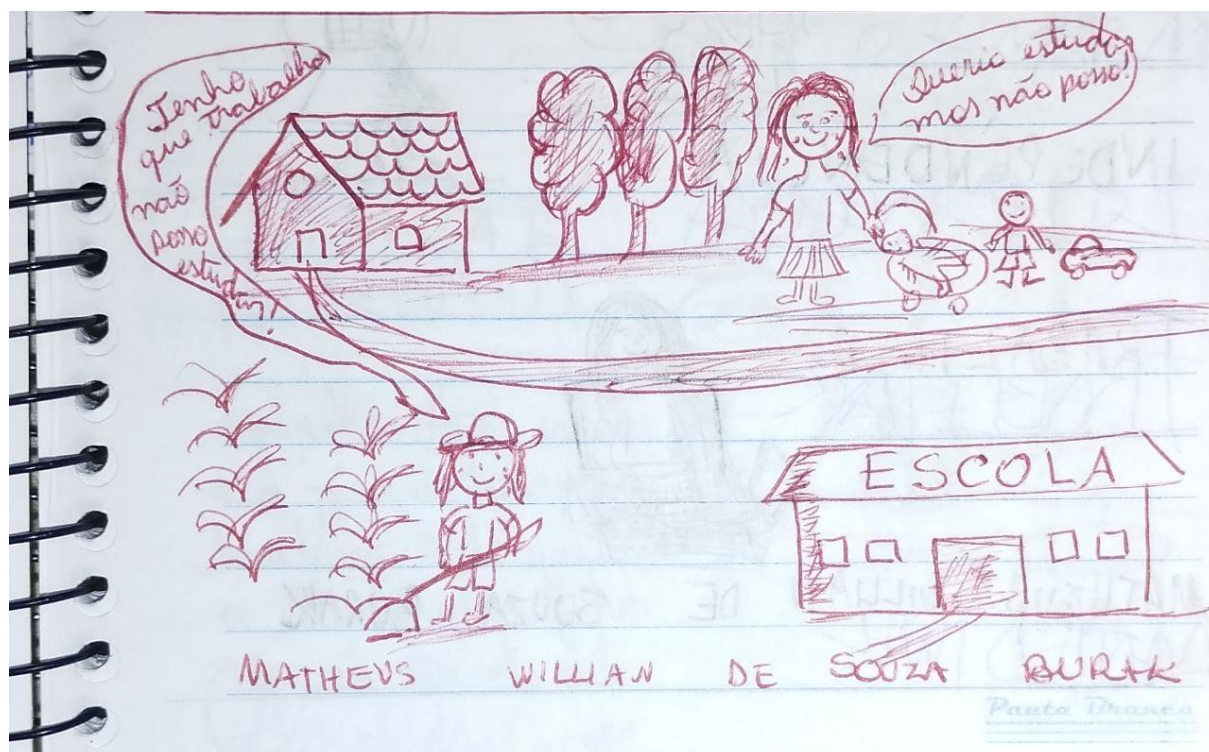 Tenho
que trabalhar
não
posso
estudar!
Queria estudar
mas não posso!
ESCOLA
MATHEUS WILLIAN DE SOUZA BURAK
Pauta Branca